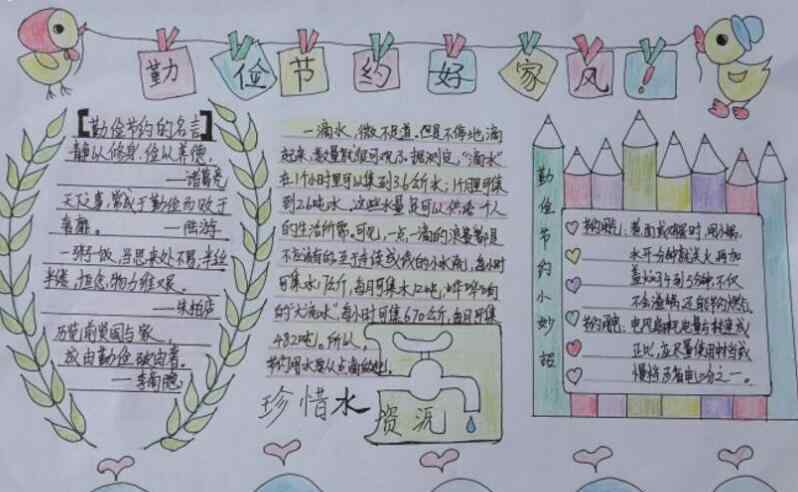 勤俭节约好家风!
【勤俭节约的名言】
静以修身,俭以养德,
——诸葛亮
天下之事,常成于勤俭而败于
奢靡。 ——陆游
一粥一饭,当思来处不易,半丝
半缕,恒念物力维艰。
——朱柏庐
历览前贤国与家,
成由勤俭破由奢。
——李商隐
一滴水,微不足道。但是不停地滴
起来,数量就很可观了。据测定,"滴水"
在1个小时里可以集到3.6公斤水;1个月里可集
到2.6吨水。这些水量,足可以供给一个人
的生活所需。可见,一点一滴的浪费都是
不应该有的。至于连续成线的小水流,每小时
可集水17公斤,每月可集水12吨,哗哗响
的"大流水",每小时可集670公斤,每月可集
482吨。所以,
节约用水要从点滴做起。
珍惜水
资源
勤俭节约小妙招
节约煤气:煮面或鸡蛋时,用小锅,
水开一分钟就关火再加
盖焖3到5分钟,不仅
不会溏锅,还能节约燃气。
节约用电:电风扇耗电量与转速成
正比,应尽量使用中档或
慢档可省电1/2分之一。